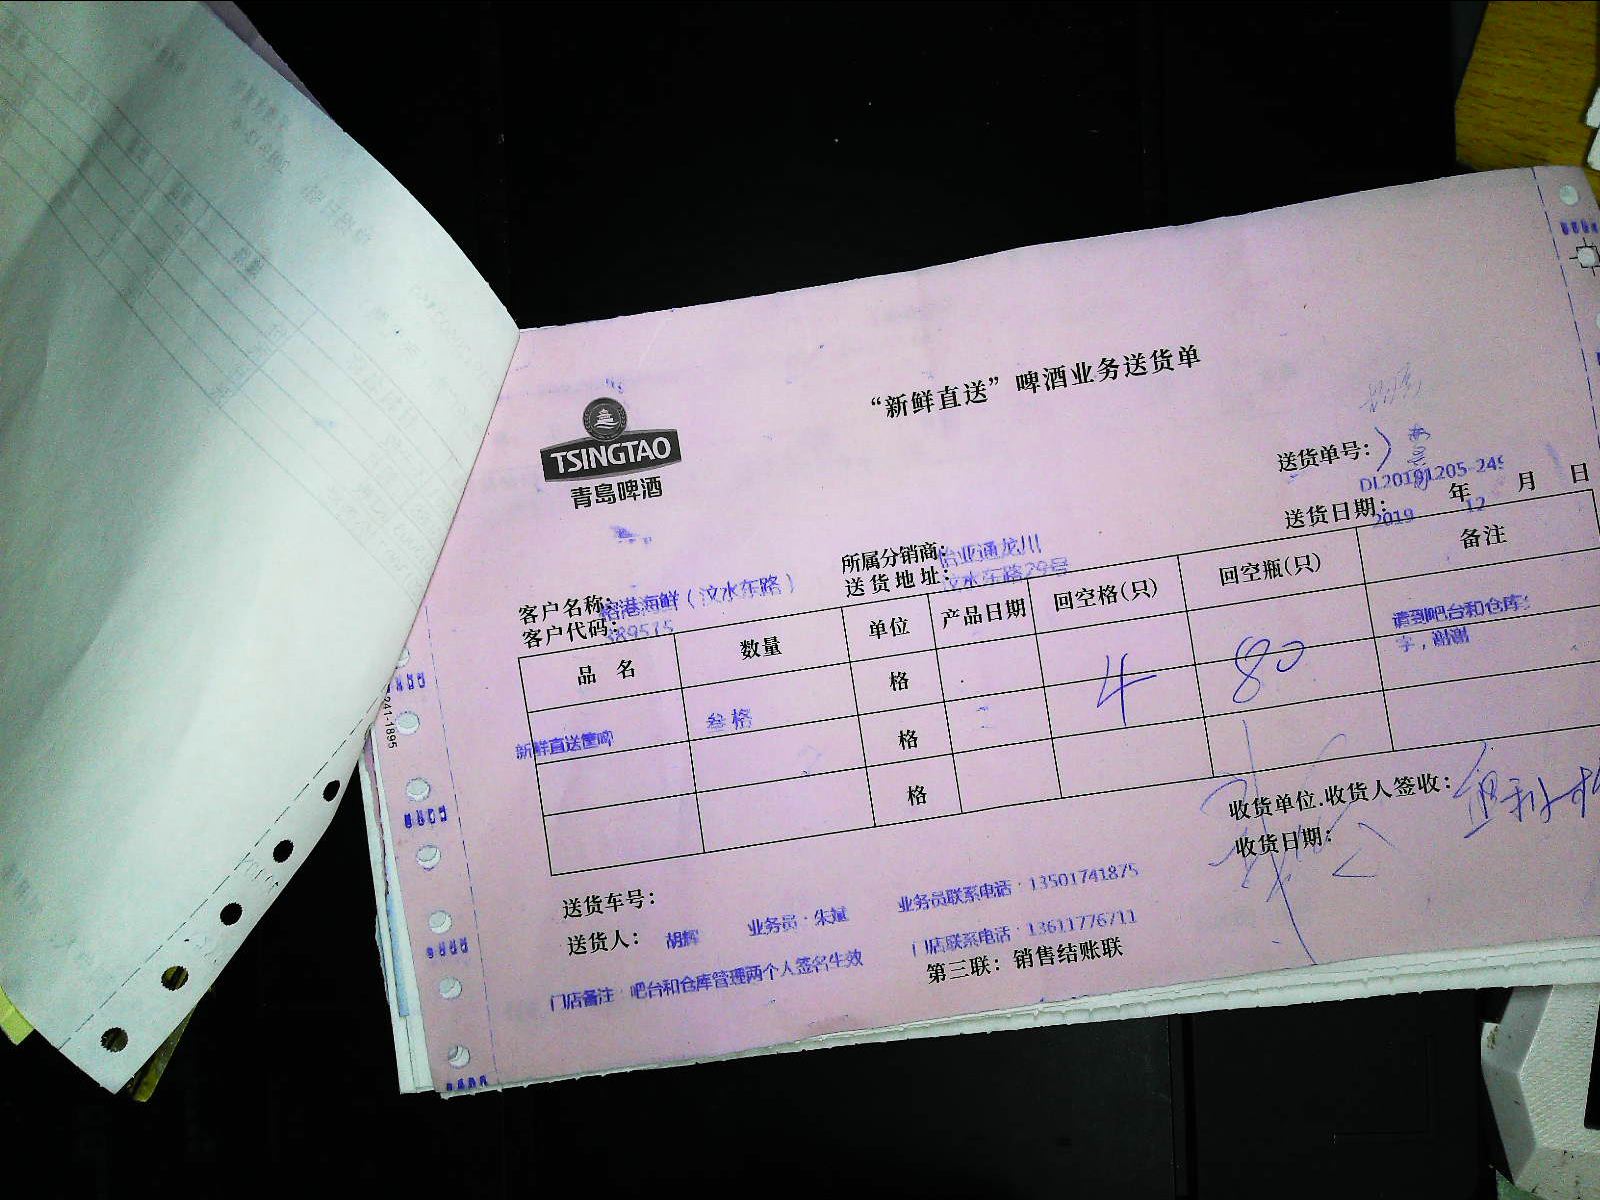 “新鲜直送”啤酒业务送货单
TSINGTAO
青岛啤酒
送货单号：
DL20191205-249
送货日期： 2019 年 12 月 日
所属分销商：怡亚通龙川
送货地址：汶水东路29号
客户名称：榕港海鲜（汶水东路）
客户代码：389515
品 名 数量 单位 产品日期 回空格(只) 回空瓶(只) 备注
新鲜直送筐啤 叁格 格 4 80 请到吧台和仓库签
字，谢谢
格
格
收货单位.收货人签收：
收货日期：
送货车号：
送货人： 胡辉 业务员：朱斌 业务员联系电话：13501741875
门店联系电话：13611776711
门店备注：吧台和仓库管理两个人签名生效
第三联：销售结账联
241-1895